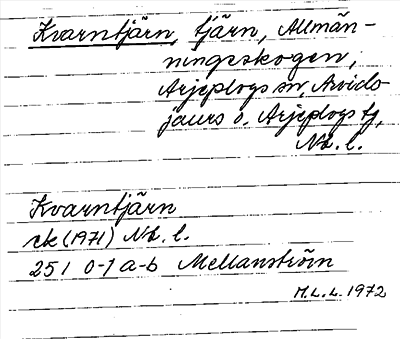 Kvarntjärn, tjärn, Allmän-
ningsskogen,
Arjeplogs sn, Arvids
jaurs o. Arjeplogs tg,
Nb. l.
Kvarntjärn
rek (1971) Nb. l.
25 I 0-1 a-b Mellanström
M.L.L. 1972